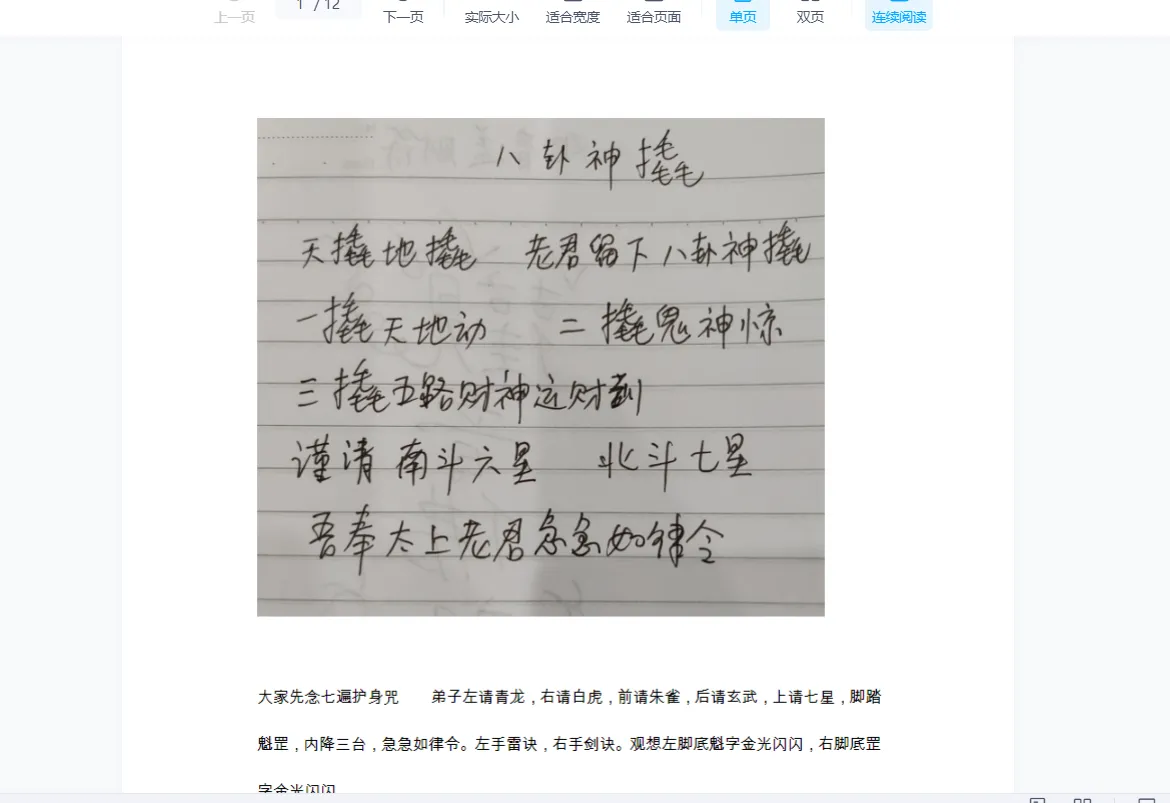 上一页 1 / 12 下一页 实际大小 适合宽度 适合页面 单页 双页 连续阅读
八卦神撬
天撬地撬 老君留下八卦神撬
一撬天地动 二撬鬼神惊
三撬五路财神运财到
谨清南斗六星 北斗七星
吾奉太上老君急急如律令
大家先念七遍护身咒 弟子左请青龙，右请白虎，前请朱雀，后请玄武，上请七星，脚踏
魁罡，内降三台，急急如律令。左手雷诀，右手剑诀。观想左脚底魁字金光闪闪，右脚底罡
字金光闪闪